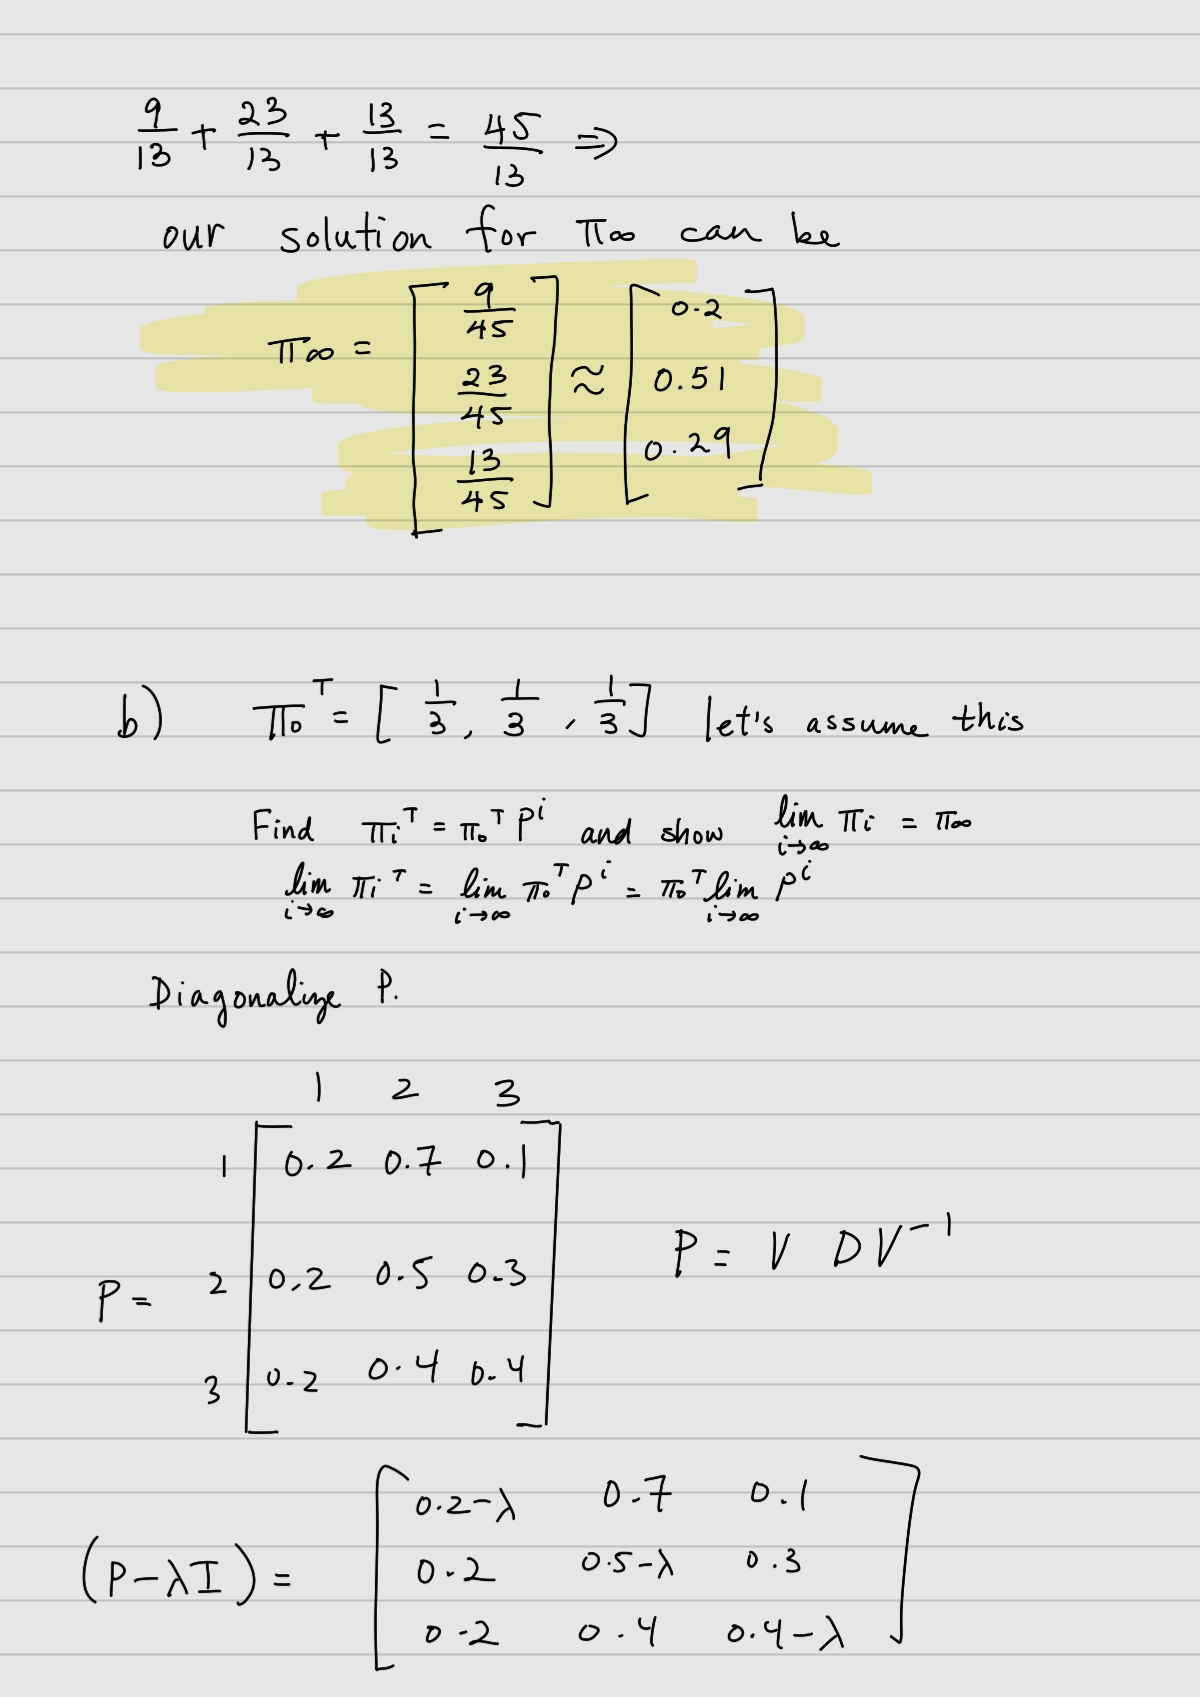 9/13 + 23/13 + 13/13 = 45/13 ⇒
our solution for π∞ can be
π∞ = [9/45 23/45 13/45] ≈ [0.2 0.51 0.29]
b) π₀ᵀ = [1/3, 1/3, 1/3] let's assume this
Find πᵢᵀ = π₀ᵀ Pⁱ and show lim i→∞ πᵢ = π∞
lim i→∞ πᵢᵀ = lim i→∞ π₀ᵀ Pⁱ = π₀ᵀ lim i→∞ Pⁱ
Diagonalize P.
1 2 3
1 0.2 0.7 0.1
P = V D V⁻¹
P = 2 0.2 0.5 0.3
3 0.2 0.4 0.4
0.2-λ 0.7 0.1
(P-λI) = 0.2 0.5-λ 0.3
0.2 0.4 0.4-λ